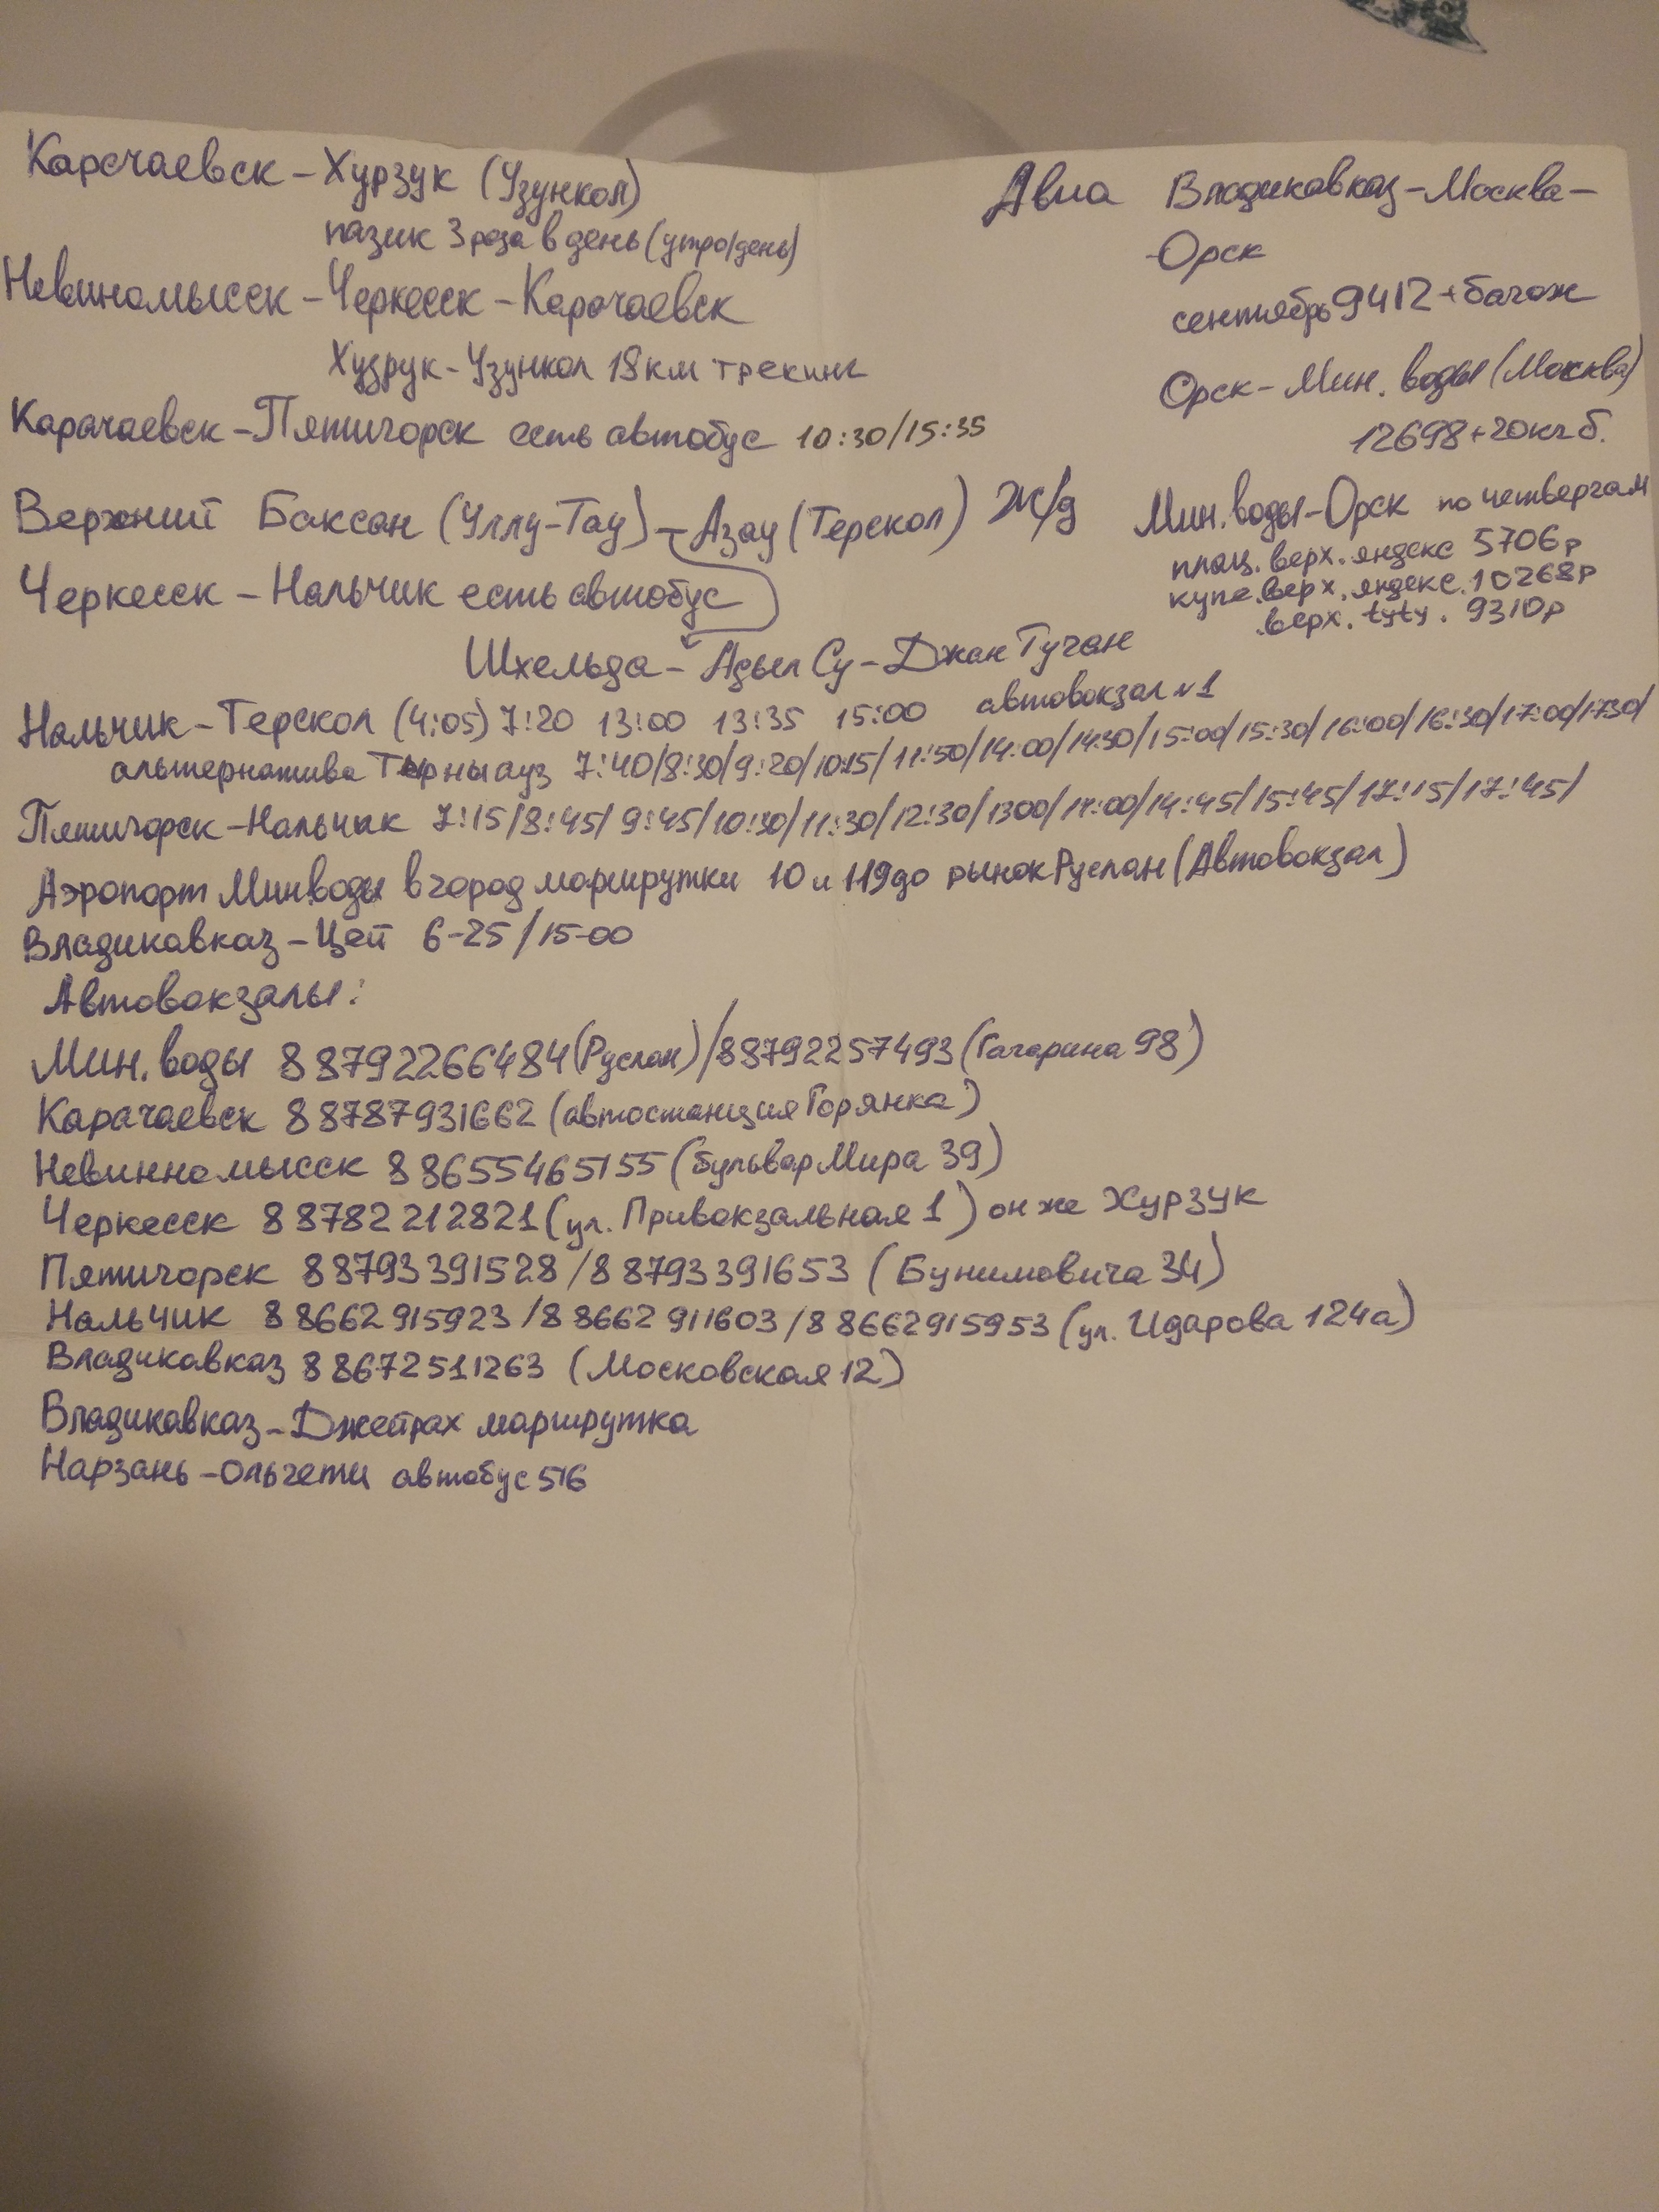 Карсчаевск - Хурзук (Узункол)
пазик 3 раза в день (утро/день)
Невиномысск - Черкесск - Карачаевск
Худрук - Узункол 18 км трекинг
Карачаевск - Пятигорск есть автобус 10:30/15:35
Верхний Баксан (Уллу-Тау) - Азау (Терскол)
Черкесск - Нальчик есть автобус
Шхельда - Адыл Су - Джан Туган
Авиа Владикавказ - Москва -
- Орск
сентябрь 9412 + багаж
Орск - Мин. воды (Москва)
12698 + 20кг б.
Ж/д Мин. воды - Орск по четвергам
плац. верх. яндекс 5706р
купе. верх. яндекс. 10268р
.верх. tyty. 9310р
Нальчик - Терскол (4:05) 7:20 13:00 13:35 15:00 автовокзал №1
альтернатива Тырныауз 7:40/8:30/9:20/10:15/11:50/14:00/14:30/15:00/15:30/16:00/16:30/17:00/17:30/
Пятигорск - Нальчик 7:15/8:45/9:45/10:30/11:30/12:30/1300/14:00/14:45/15:45/17:15/17:45/
Аэропорт Мин.воды в город маршрутки 10 и 119 до рынок Руслан (Автовокзал)
Владикавказ - Цей 6-25/15-00
Автовокзалы:
Мин. воды 88792266484 (Руслан) / 88792257493 (Гагарина 98)
Карачаевск 88787931662 (автостанция Горянка)
Невинномысск 88655465155 (бульвар Мира 39)
Черкесск 88782212821 (ул. Привокзальная 1) он же Хурзук
Пятигорск 88793391528 / 88793391653 (Бунимовича 34)
Нальчик 88662915923 / 88662911603 / 88662915953 (ул. Идарова 124а)
Владикавказ 88672511263 (Московская 12)
Владикавказ - Джейрах маршрутка
Нарзань - Ольгети автобус 516